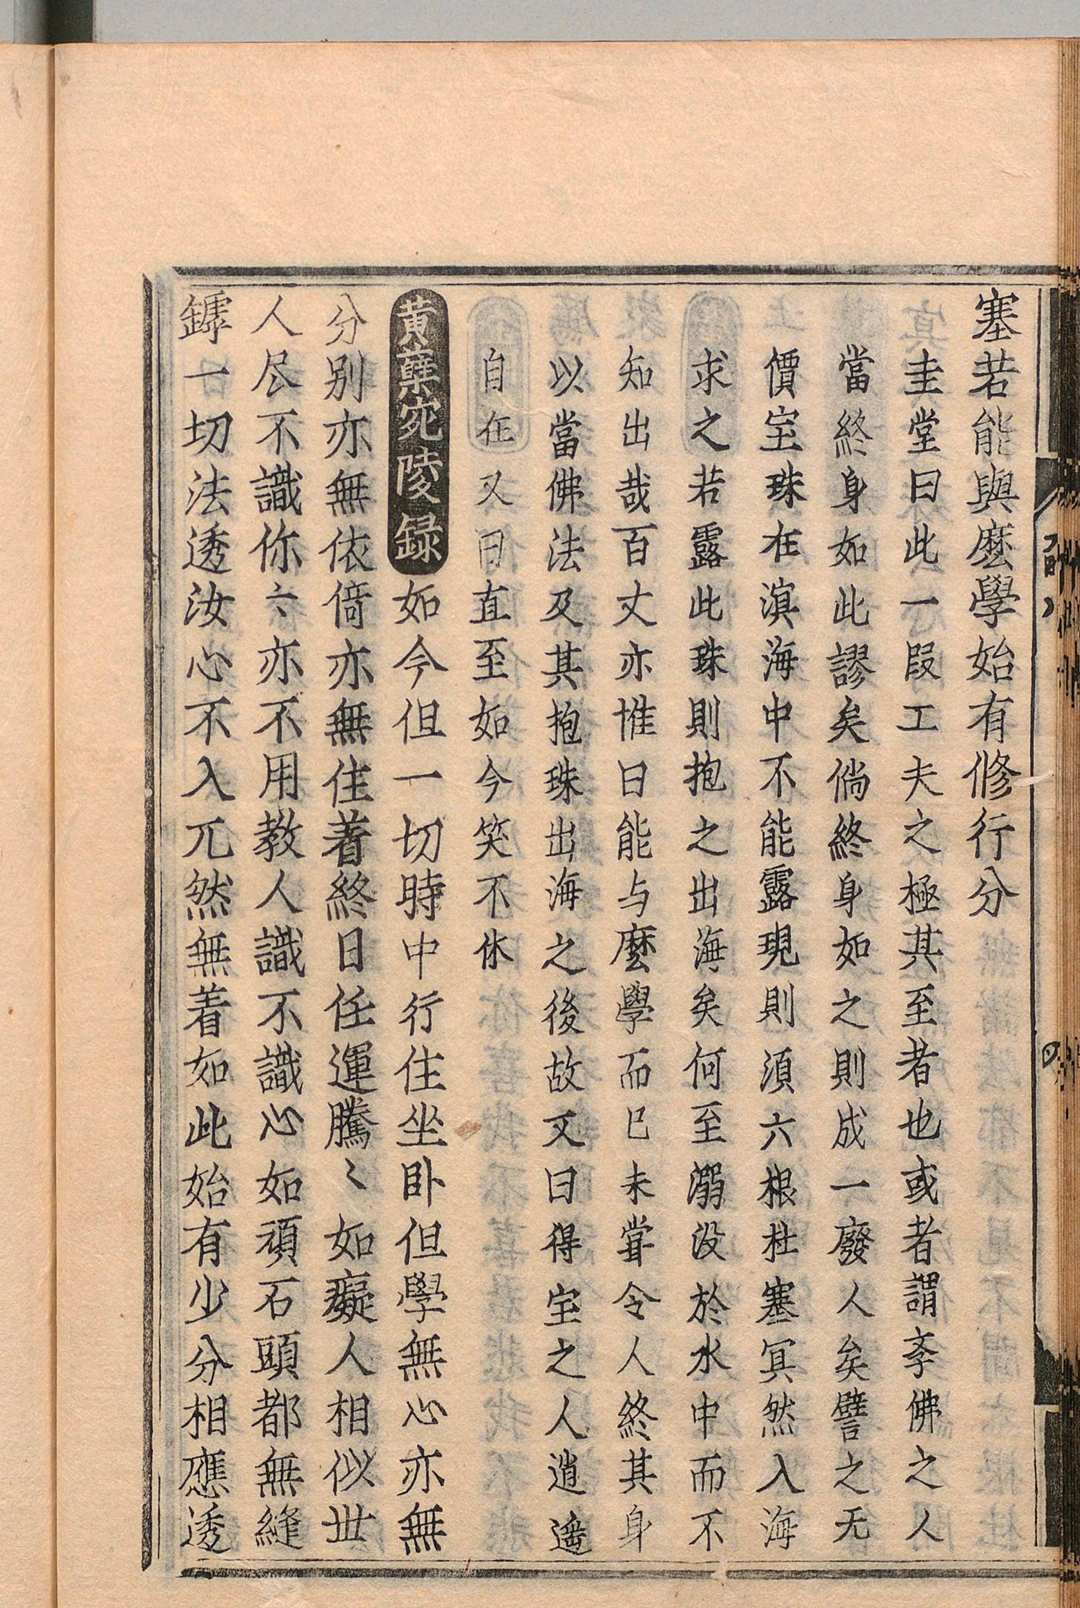 塞若能與麼學始有修行分
圭堂曰此一叚工夫之極其至者也或者謂斈佛之人
當終身如此謬矣倘終身如之則成一廢人矣譬之无
價宝珠在滇海中不能露現則須六根杜塞冥然入海
求之若露此珠則抱之出海矣何至溺没於水中而不
知出哉百丈亦惟曰能与麼學而已未甞令人終其身
以當佛法及其抱珠出海之後故又曰得宝之人逍遥
自在又曰直至如今笑不休
黄蘗宛陵録如今但一切時中行住坐卧但學無心亦無
分別亦無依倚亦無住着終日任運騰〻如癡人相似世
人尽不識你〻亦不用教人識不識心如頑石頭都無縫
罅一切法透汝心不入兀然無着如此始有少分相應透